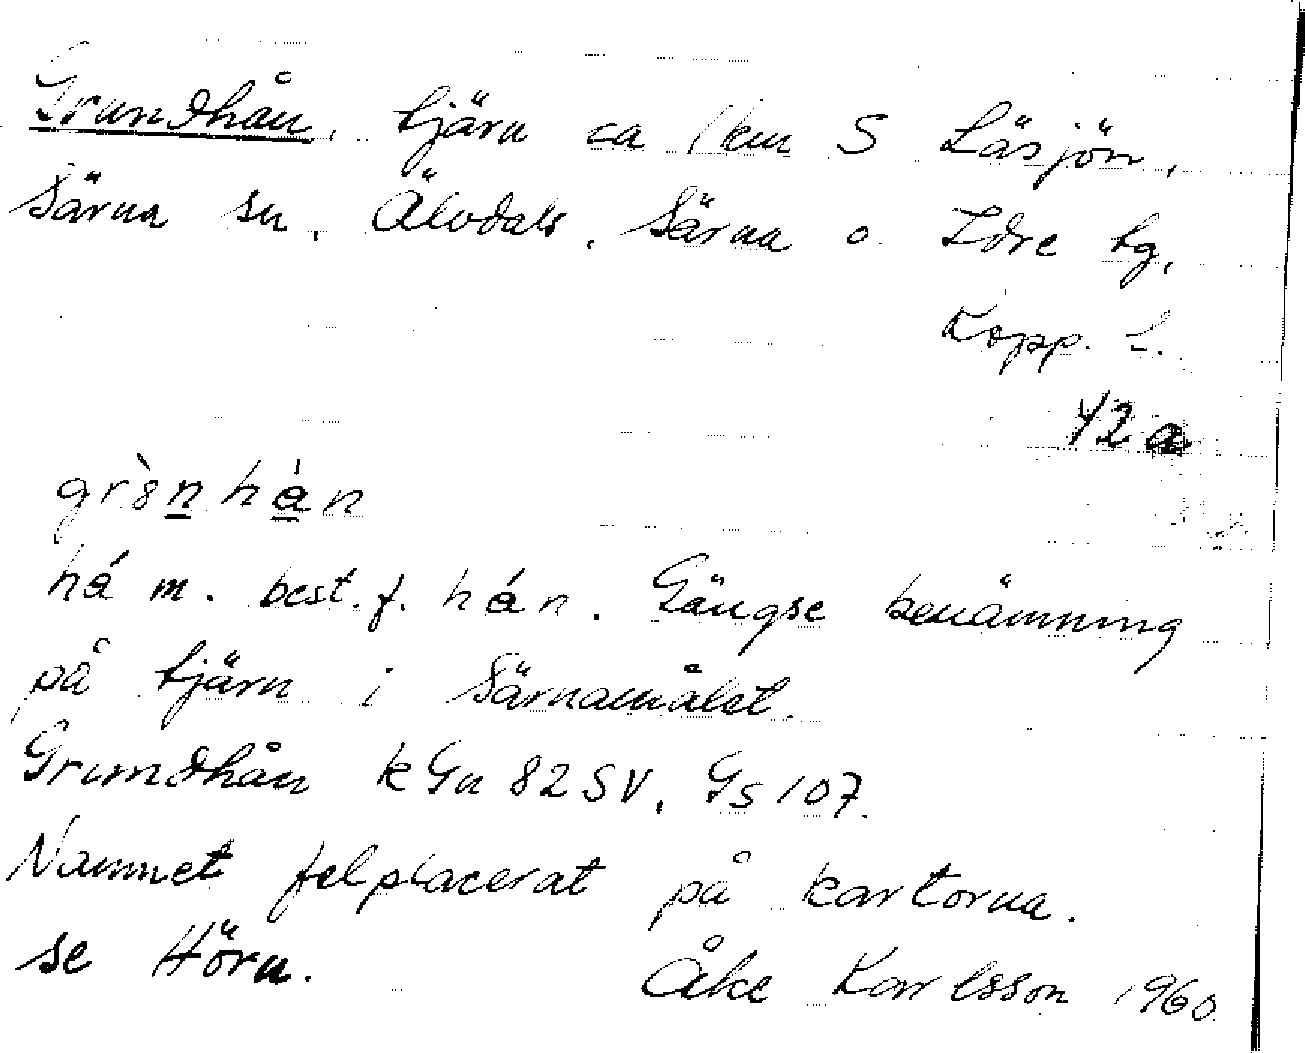 Grundhån, tjärn ca 1 km S Läsjön,
Särna sn, Älvdals, Särna o Idre tg,
Kopp. l.
42a
grɵ̀nhàn
há m. best. f. hán. Gängse benämning
på tjärn i Särnamålet.
Grundhån kGn 82 SV, Gs 107.
Namnet felplacerat på kartorna.
se Hörn.
Åke Karlsson 1960